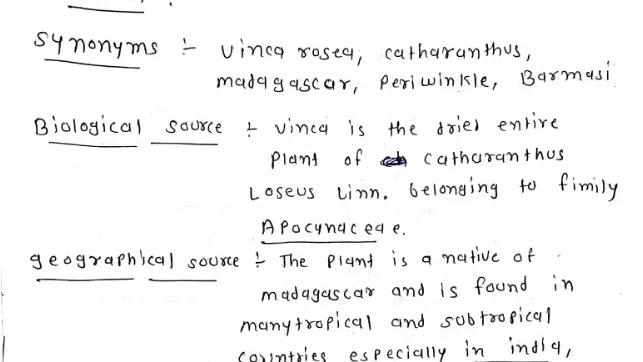 Synonyms :- vinca rosea, catharanthus,
madagascar, Periwinkle, Barmasi
Biological source :- vinca is the dried entire
Plant of catharanthus
Loseus Linn. belonging to fimily
Apocynaceae.
geographical source :- The Plant is a native of
madagascar and is found in
manytropical and subtropical
countries especially in india,